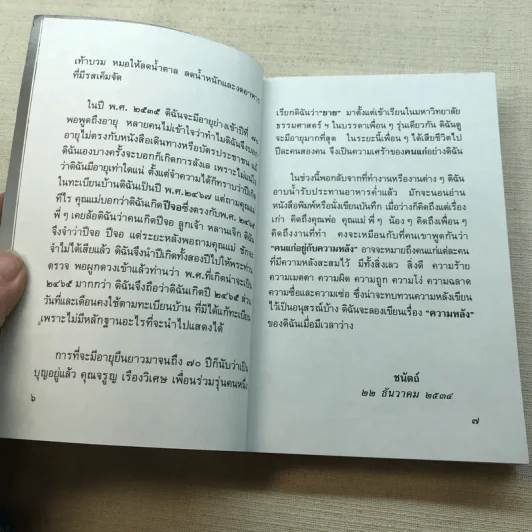 เท้าบวม หมอให้ลดน้ำตาล ลดน้ำหนักและงดอาหาร
ที่มีรสเค็มจัด
ในปี พ.ศ. ๒๕๓๕ ดิฉันจะมีอายุย่างเข้าปีที่
พอพูดถึงอายุ หลายคนไม่เข้าใจว่าทำไมดิฉันจึงบอก
อายุไม่ตรงกับหนังสือเดินทางหรือบัตรประชาชน
ดิฉันเองบางครั้งจะบอกก็เกิดการลังเล เพราะไม่แน่ใจ
ว่าดิฉันมีอายุเท่าใดแน่ ตั้งแต่จำความได้ก็ทราบว่าปีเกิด
ในทะเบียนบ้านดิฉันเป็นปี พ.ศ. ๒๔๖๗ แต่ถามคุณแม่
ทีไร คุณแม่บอกว่าดิฉันเกิดปีจอซึ่งตรงกับพ.ศ. ๒๔๖๕
พี่ ๆ เคยล้อดิฉันว่าคนเกิดปีจอ ลูกเจ้า หลานเจ๊ก ดิฉัน
จึงจำว่าปีจอ ปีจอ แต่ระยะหลังพอถามคุณแม่ ชักจะ
จำไม่ได้เสียแล้ว ดิฉันจึงนำปีเกิดทั้งสองปีไปให้พระท่าน
ตรวจ พอผูกดวงเข้าแล้วท่านว่า พ.ศ.ที่เกิดน่าจะเป็น
๒๔๖๕ มากกว่า ดิฉันจึงถือว่าดิฉันเกิดปี ๒๔๖๕ ส่วน
วันที่และเดือนคงใช้ตามทะเบียนบ้าน ที่มิได้แก้ทะเบียน
เพราะไม่มีหลักฐานอะไรที่จะนำไปแสดงได้
การที่จะมีอายุยืนยาวมาจนถึง ๗๐ ปีก็นับว่าเป็น
บุญอยู่แล้ว คุณจรูญ เรืองวิเศษ เพื่อนร่วมรุ่นคนหนึ่ง
๖
เรียกดิฉันว่า"ยาย" มาตั้งแต่เข้าเรียนในมหาวิทยาลัย
ธรรมศาสตร์ ฯ ในบรรดาเพื่อน ๆ รุ่นเดียวกัน ดิฉันดู
จะมีอายุมากที่สุด ในระยะนี้เพื่อน ๆ ได้เสียชีวิตไป
ปีละคนสองคน จึงเป็นความเศร้าของคนแก่อย่างดิฉัน
ในช่วงนี้พอกลับจากที่ทำงานหรืองานต่าง ๆ ดิฉัน
อาบน้ำรับประทานอาหารค่ำแล้ว มักจะนอนอ่าน
หนังสือพิมพ์หรือนั่งเขียนบันทึก เมื่อว่างก็คิดถึงแต่เรื่อง
เก่า คิดถึงคุณพ่อ คุณแม่ พี่ ๆ น้อง ๆ คิดถึงเพื่อน ๆ
คิดถึงงานที่ทำ คงจะเหมือนกับที่คนเขาพูดกันว่า
"คนแก่อยู่กับความหลัง" อาจจะหมายถึงคนแก่แต่ละคน
ที่มีความหลังสะสมไว้ มีทั้งสิ่งเลว สิ่งดี ความร้าย
ความเมตตา ความผิด ความถูก ความโง่ ความฉลาด
ความซื่อและความเซ่อ ซึ่งน่าจะทบทวนความหลังเขียน
ไว้เป็นอนุสรณ์บ้าง ดิฉันจะลองเขียนเรื่อง "ความหลัง"
ของดิฉันเมื่อมีเวลาว่าง
ชนัตถ์
๒๒ ธันวาคม ๒๕๓๔
๗